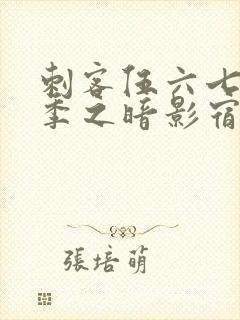 刺客伍六七
季之暗影宿
張培萌